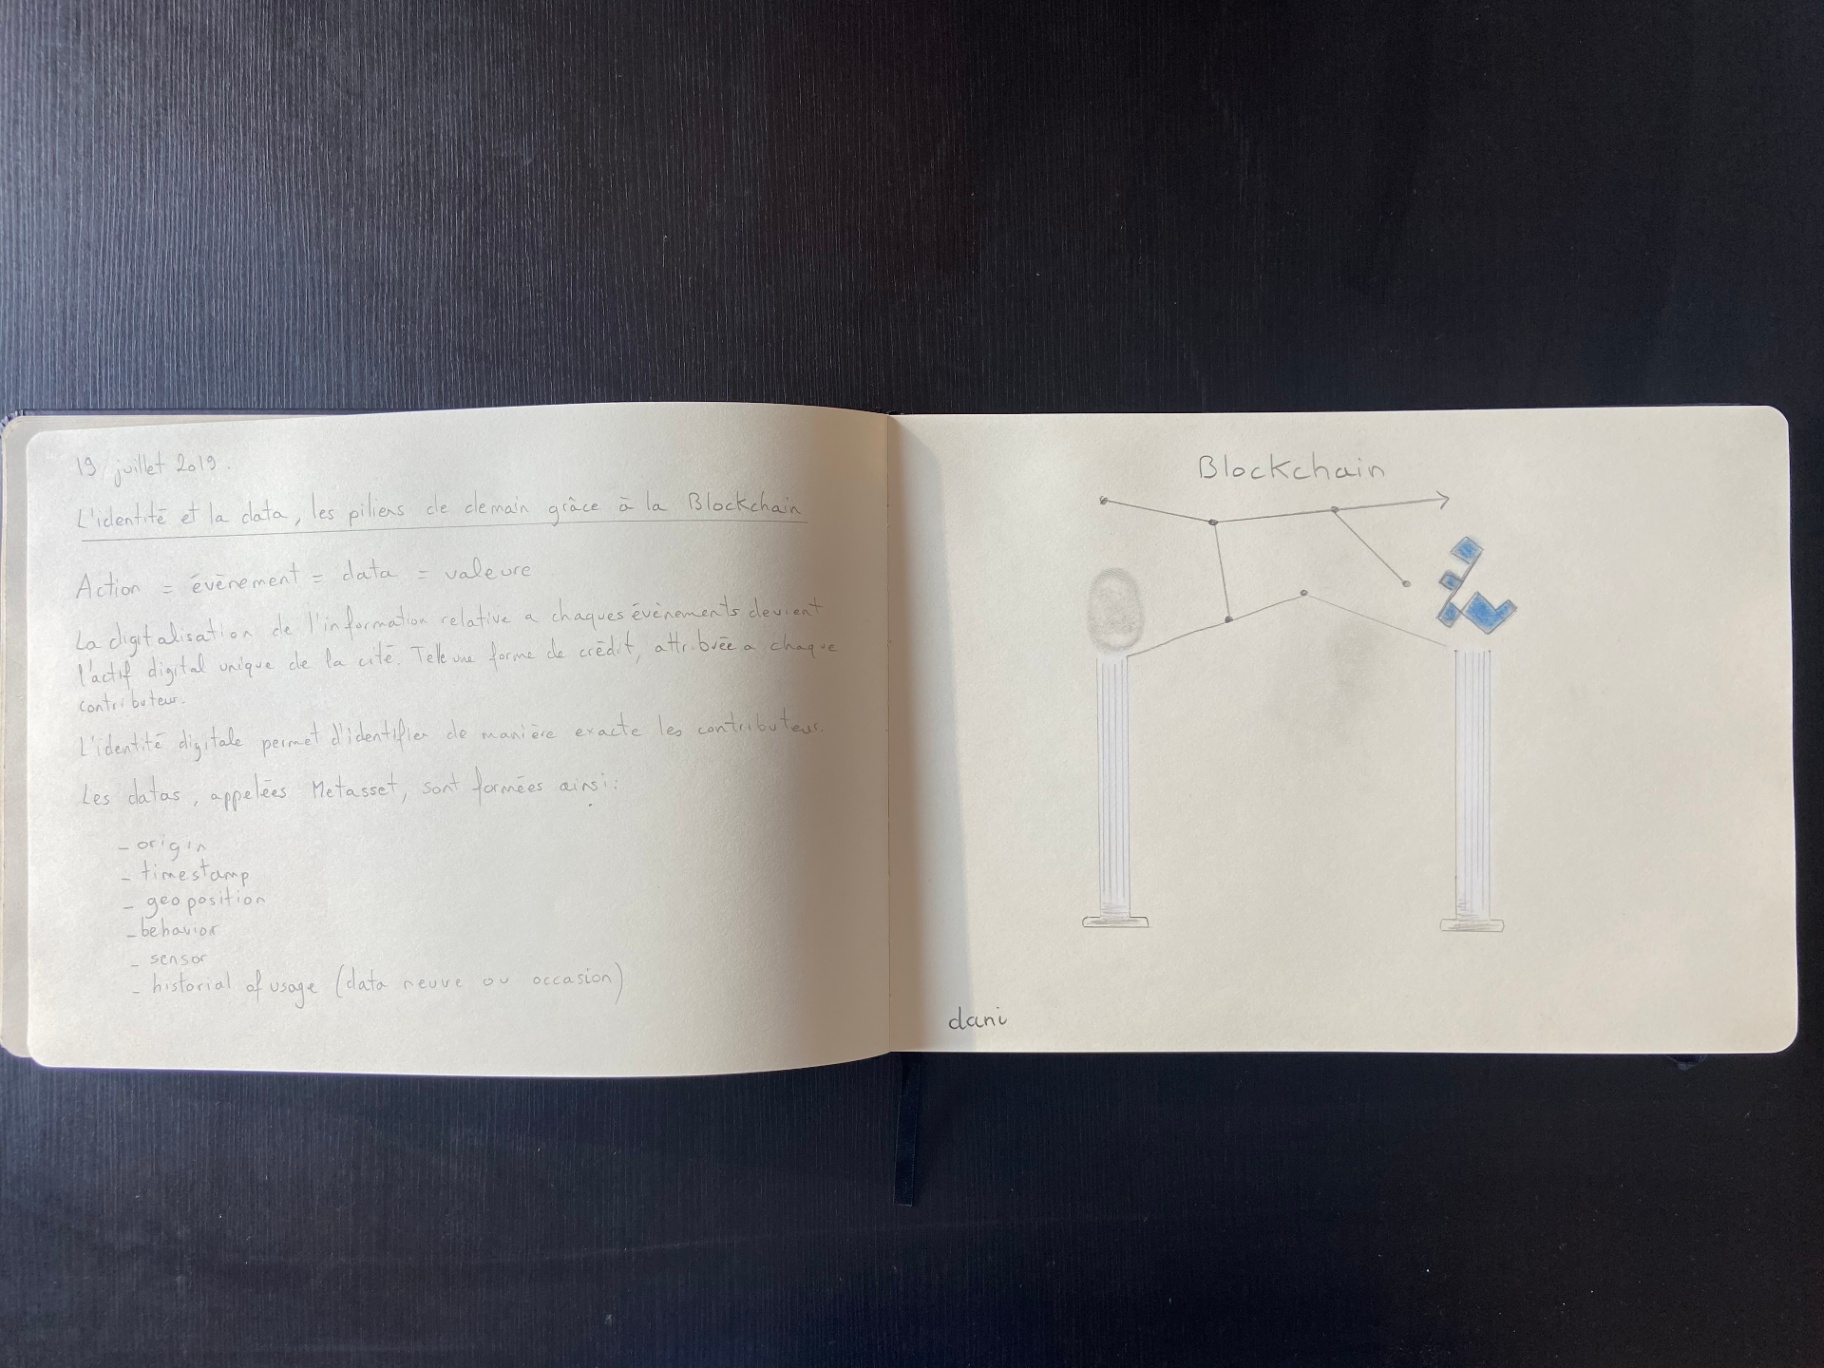 19 juillet 2019.
L'identité et la data, les piliers de demain grâce à la Blockchain
Action = évènement = data = valeure
La digitalisation de l'information relative a chaques évènements devient
l'actif digital unique de la cité. Telle une forme de crédit, attribuée a chaque
contributeur.
L'identité digitale permet d'identifier de manière exacte les contributeurs.
Les datas, appelées Metasset, sont formées ainsi:
- origin
- timestamp
- geoposition
- behavior
- sensor
- historial of usage (data neuve ou occasion)
Blockchain
dani